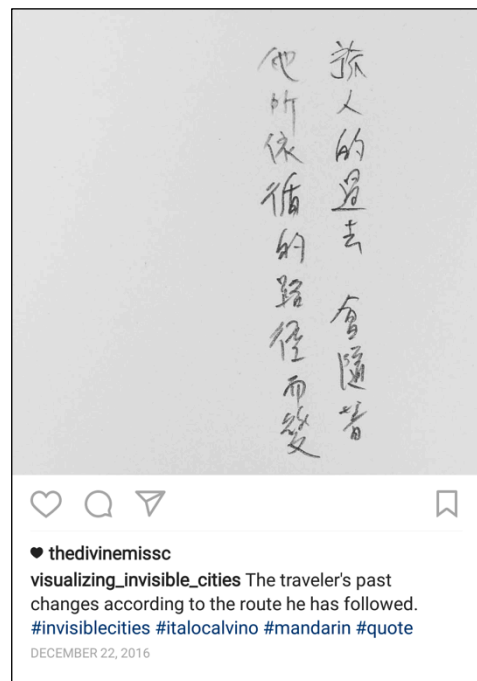 旅人的過去 會隨著
他所依循的路徑而變
thedivinemissc
visualizing_invisible_cities The traveler's past
changes according to the route he has followed.
#invisiblecities #italocalvino #mandarin #quote
DECEMBER 22, 2016